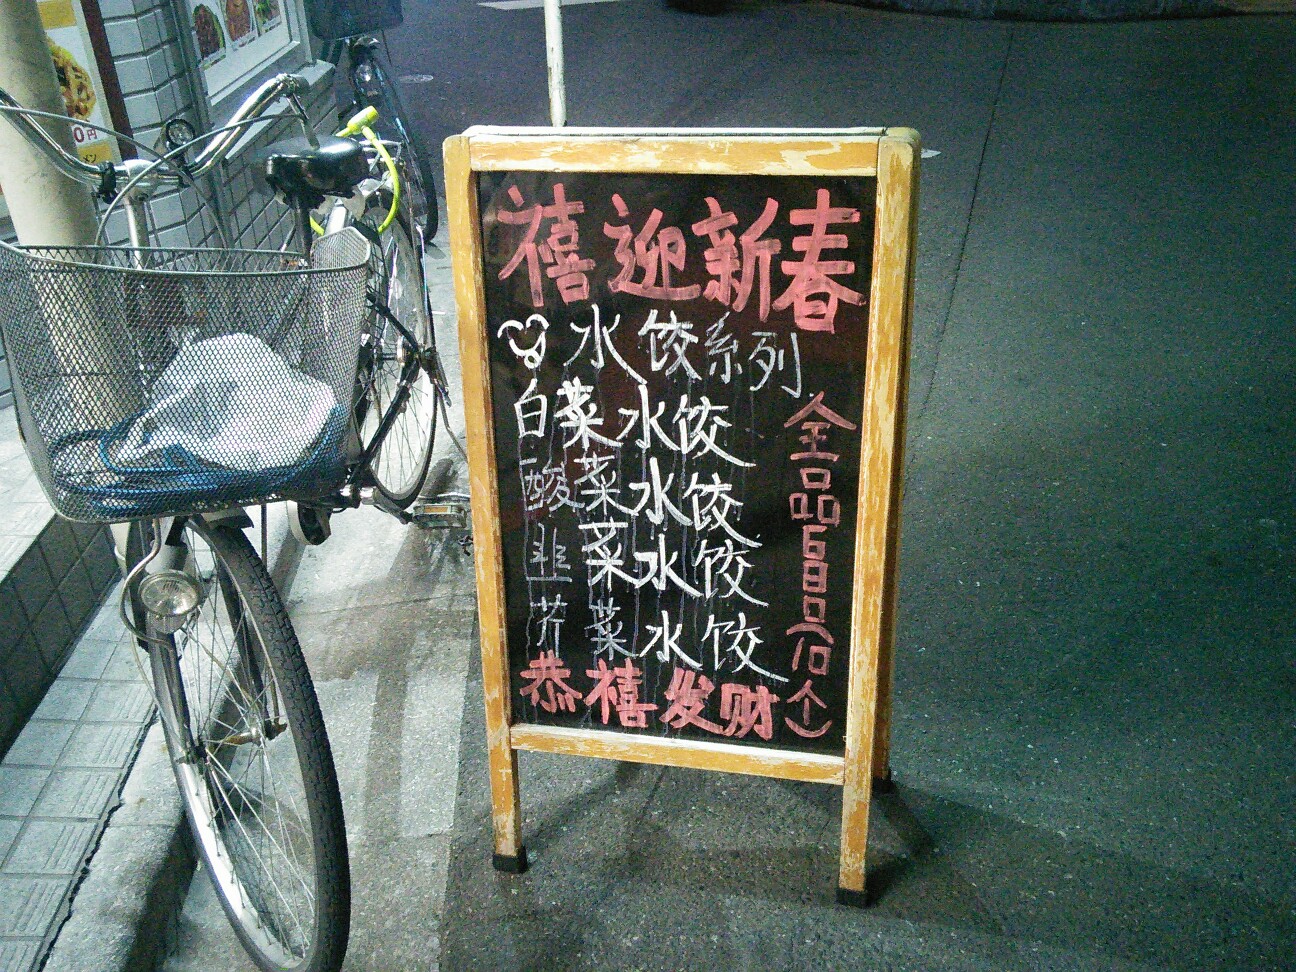 禧迎新春
水饺系列
白菜水饺
酸菜水饺
韭菜水饺
芥菜水饺
恭禧发财
全品
0円
メン